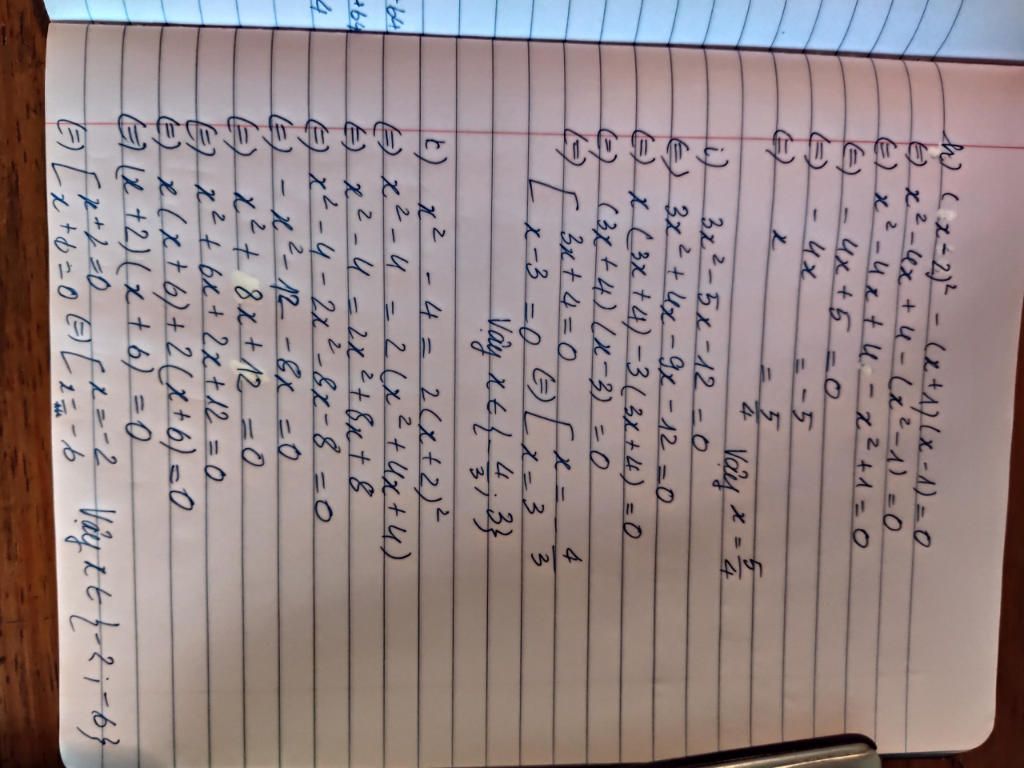 h) (x-2)² - (x+1)(x-1) = 0
(=) x² - 4x + 4 - (x² - 1) = 0
(=) x² - 4x + 4 - x² + 1 = 0
(=) - 4x + 5 = 0
(=) - 4x = -5
(=) x = 5/4 Vậy x = 5/4
i) 3x² - 5x - 12 = 0
(=) 3x² + 4x - 9x - 12 = 0
(=) x(3x+4) - 3(3x+4) = 0
(=) (3x+4)(x-3) = 0
(=) [ 3x+4 = 0 (=) [ x = - 4/3
x-3 = 0 x = 3
Vậy x ∈ {-4/3; 3}
t) x² - 4 = 2(x+2)²
(=) x² - 4 = 2(x² + 4x + 4)
(=) x² - 4 = 2x² + 8x + 8
(=) x² - 4 - 2x² - 8x - 8 = 0
(=) - x² - 12 - 8x = 0
(=) x² + 8x + 12 = 0
(=) x² + 6x + 2x + 12 = 0
(=) x(x+6) + 2(x+6) = 0
(=) (x+2)(x+6) = 0
(=) [ x+2 = 0 (=) [ x = -2 Vậy x ∈ {-2; -6}
x+6 = 0 x = -6